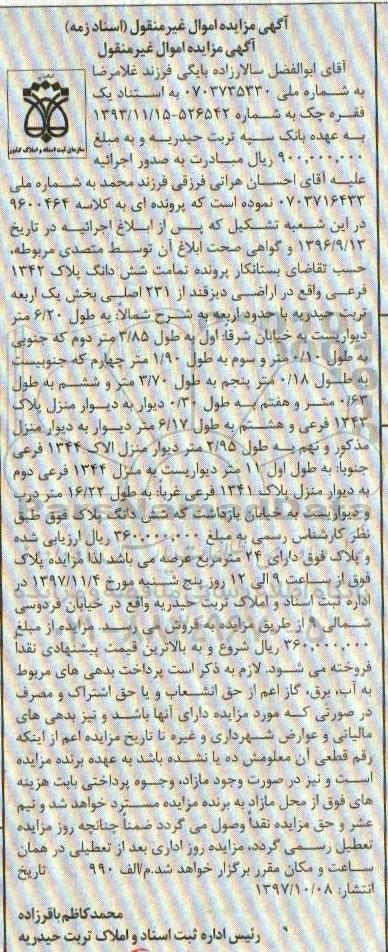 آگهی مزایده اموال غیرمنقول (اسناد زمه)
آگهی مزایده اموال غیرمنقول
آقای ابوالفضل سالارزاده بایگی فرزند غلامرضا
به شماره ملی ۰۷۰۳۷۳۵۳۳۰ به استناد یک
فقره چک به شماره ۵۲۶۵۴۲-۱۳۹۳/۱۱/۱۵
به عهده بانک سپه تربت حیدریه و به مبلغ
۹۰۰,۰۰۰,۰۰۰ ریال مبادرت به صدور اجرائیه
سازمان ثبت اسناد و املاک کشور
علیه آقای احسان هراتی فرزقی فرزند محمد به شماره ملی
۰۷۰۳۷۱۶۴۳۳ نموده است که پرونده ای به کلاسه ۹۶۰۰۴۶۴
در این شعبه تشکیل که پس از ابلاغ اجرائیه در تاریخ
۱۳۹۶/۹/۱۳ و گواهی صحت ابلاغ آن توسط متصدی مربوطه،
حسب تقاضای بستانکار پرونده تمامت شش دانگ پلاک ۱۳۴۲
فرعی واقع در اراضی دیزقند از ۲۳۱ اصلی بخش یک اربعه
تربت حیدریه با حدود اربعه به شرح شمالا: به طول ۶/۲۰ متر
دیواریست به خیابان شرقا: اول به طول ۳/۸۵ متر دوم که جنوبی
به طول ۰/۱۰ متر و سوم به طول ۱/۹۰ متر چهارم که جنوبیست
به طول ۰/۱۸ متر پنجم به طول ۳/۷۰ متر و ششم به طول
۰/۶۳ متر و هفتم به طول ۰/۳۰ دیوار به دیوار منزل پلاک
۱۳۴۳ فرعی و هشتم به طول ۶/۱۷ متر دیوار به دیوار منزل
مذکور و نهم به طول ۳/۹۵ متر دیوار منزل الاک ۱۳۴۴ فرعی
جنوبا: به طول اول ۱۱ متر دیواریست به منزل ۱۳۴۴ فرعی دوم
به دیوار منزل پلاک ۱۳۴۱ فرعی غربا: به طول ۱۶/۲۲ متر درب
و دیواریست به خیابان بازداشت که شش دانگ پلاک فوق طبق
نظر کارشناس رسمی به مبلغ ۳۶۰,۰۰۰,۰۰۰ ریال ارزیابی شده
و پلاک فوق دارای ۲۴ مترمربع عرصه می باشد لذا مزایده پلاک
فوق از ساعت ۹ الی ۱۲ روز پنج شنبه مورخ ۱۳۹۷/۱۱/۴ در
اداره ثبت اسناد و املاک تربت حیدریه واقع در خیابان فردوسی
شمالی از طریق مزایده به فروش می رسد. مزایده از مبلغ
۳۶۰,۰۰۰,۰۰۰ ریال شروع و به بالاترین قیمت پیشنهادی نقداً
فروخته می شود: لازم به ذکر است پرداخت بدهی های مربوط
به آب، برق، گاز اعم از حق انشعاب و یا حق اشتراک و مصرف
در صورتی که مورد مزایده دارای آنها باشد و نیز بدهی های
مالیاتی و عوارض شهرداری و غیره تا تاریخ مزایده اعم از اینکه
رقم قطعی آن معلومش ده یا نشده باشد به عهده برنده مزایده
است و نیز در صورت وجود مازاد، وجوه پرداختی بابت هزینه
های فوق از محل مازاد به برنده مزایده مسترد خواهد شد و نیم
عشر و حق مزایده نقداً وصول می گردد ضمناً چنانچه روز مزایده
تعطیل رسمی گردد، مزایده روز اداری بعد از تعطیلی در همان
ساعت و مکان مقرر برگزار خواهد شد.م/الف ۹۹۰ تاریخ
انتشار: ۱۳۹۷/۱۰/۰۸
محمدکاظم باقرزاده
رئیس اداره ثبت اسناد و املاک تربت حیدریه